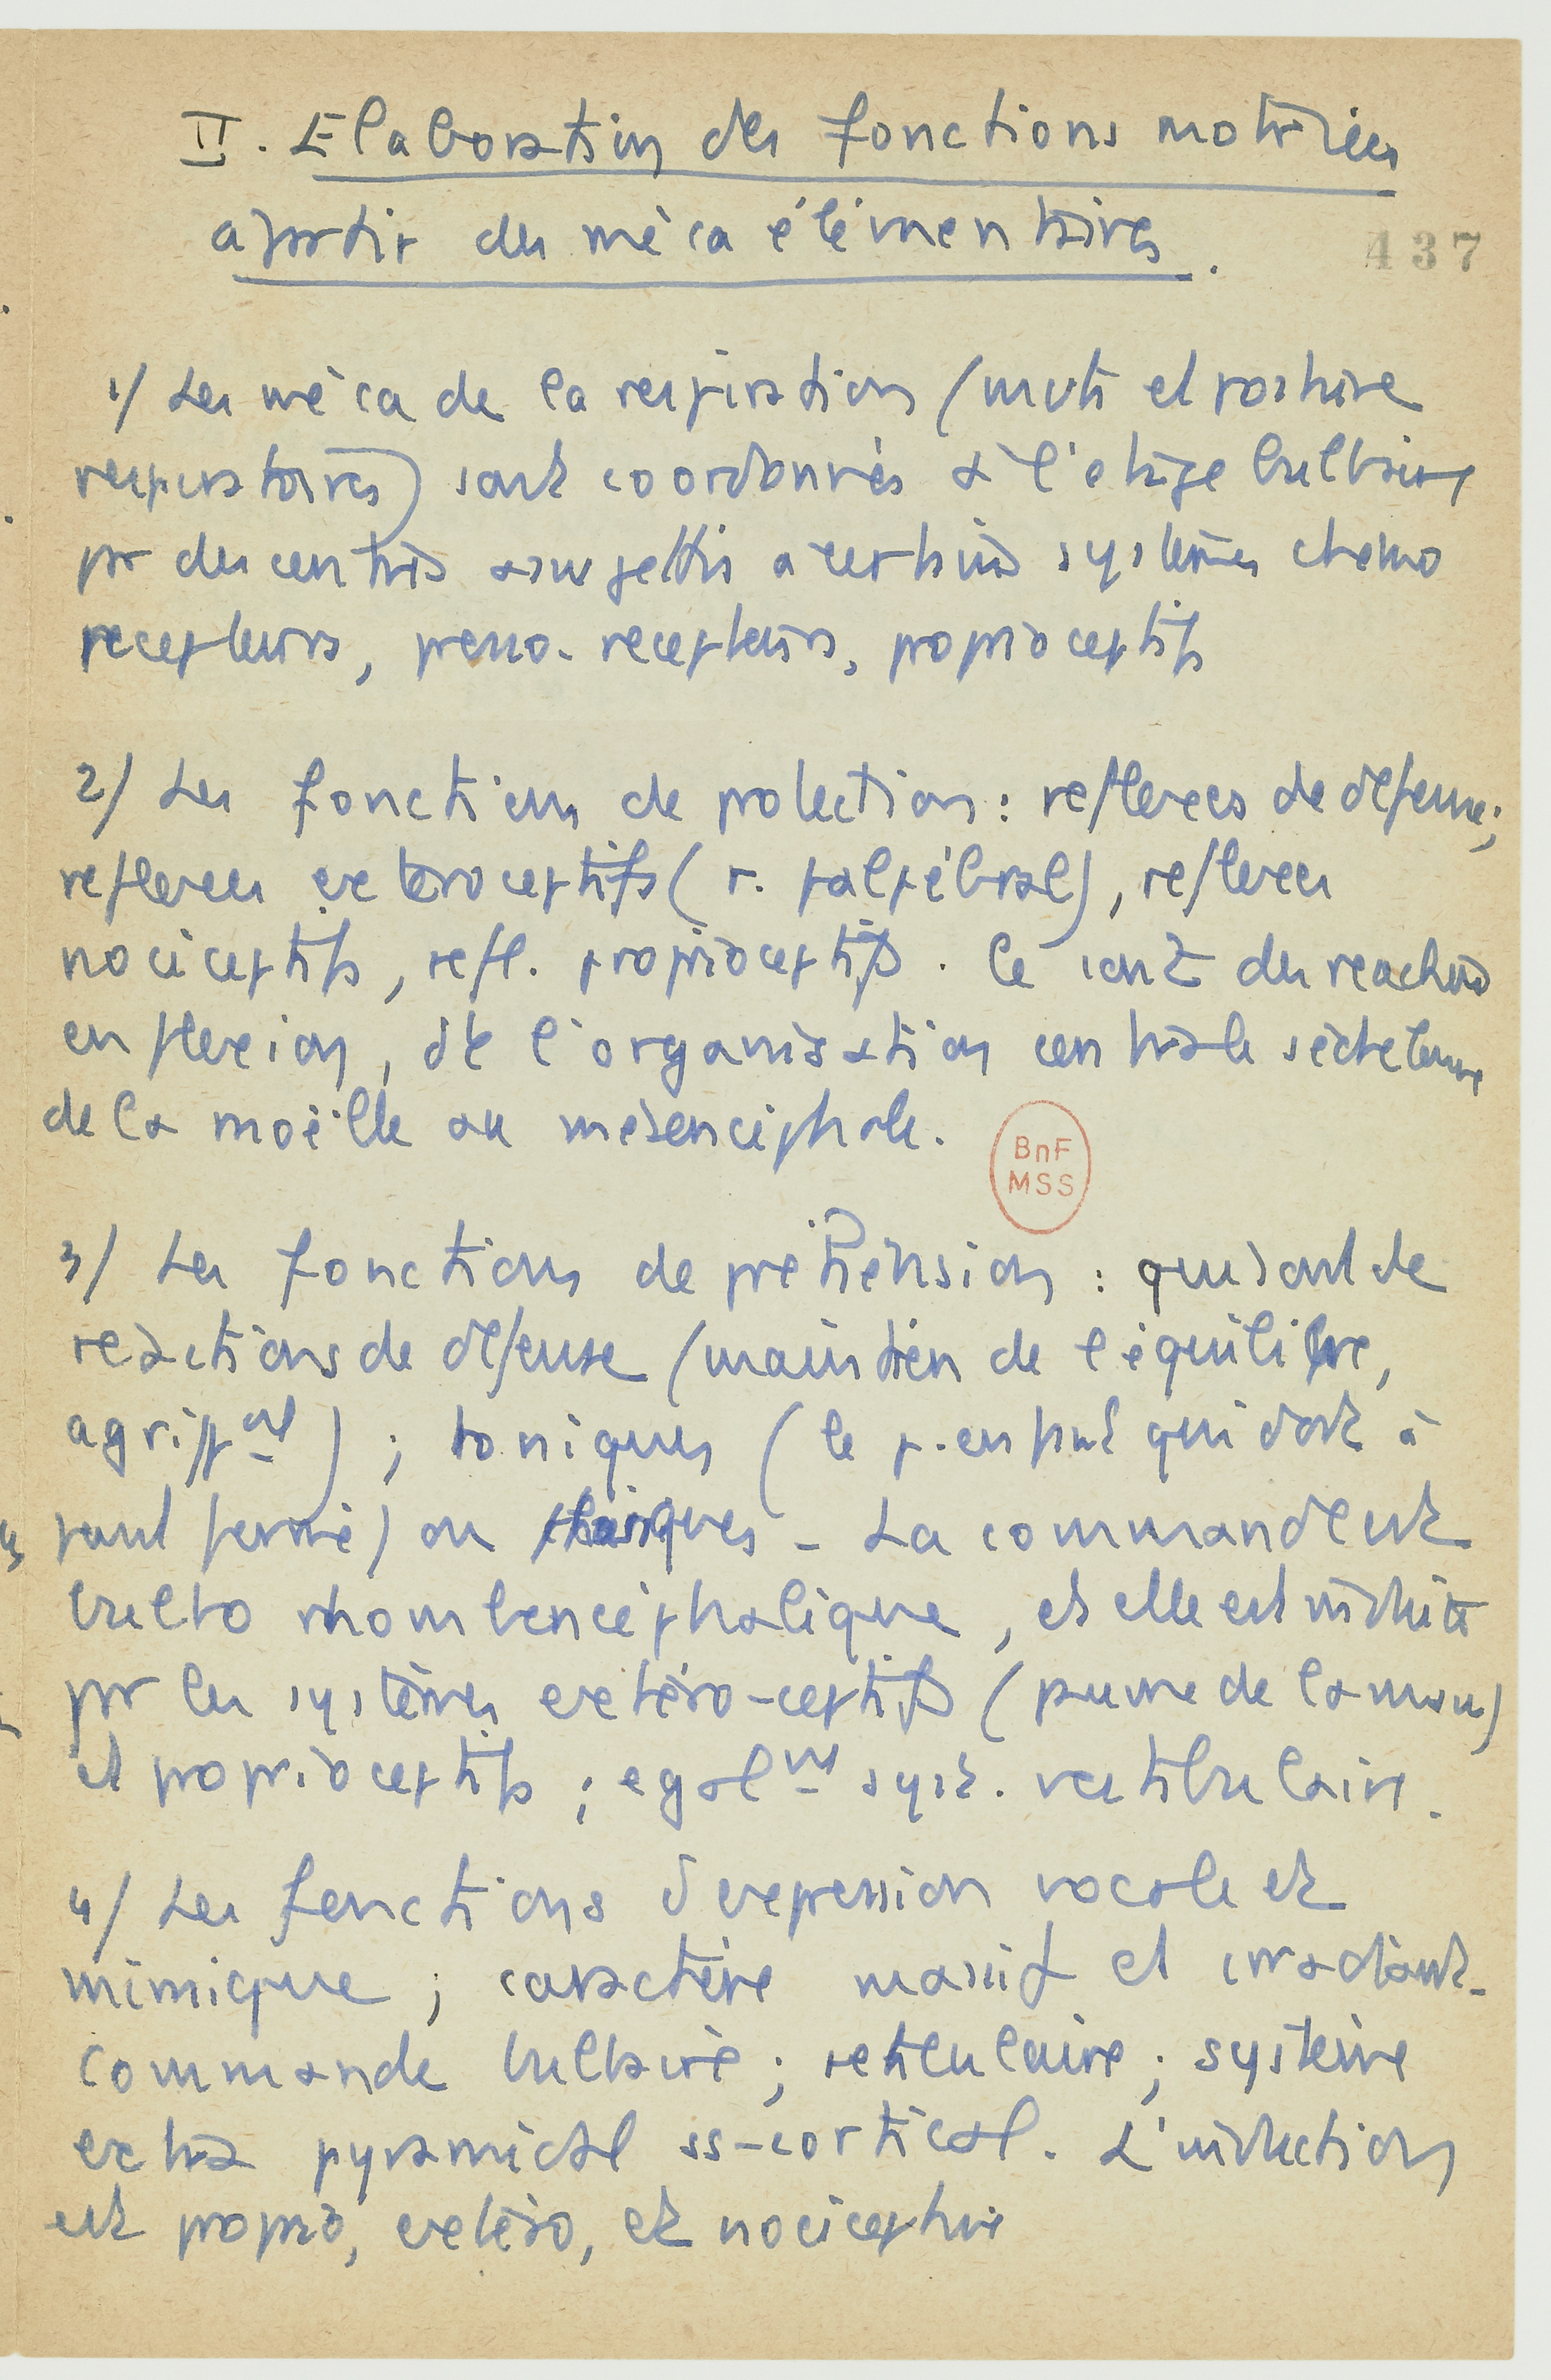 II. Elaboration des fonctions motrices
a partir des méca élémentaires.
437
1/ Les méca de la respiration (mvts et posture
respiratoires) sont coordonnés à l'étage bulbaire
par des centres assujettis a certains systèmes chemo
recepteurs, presso-recepteurs, proprioceptifs
2/ Les fonctions de protection : reflexes de défense ;
reflexes exteroceptifs (r. palpébral), reflexes
nociceptifs, refl. proprioceptifs. Ce sont des reactions
en flexion, de l'organisation centrale
de la moëlle au mésencéphale.
BnF
MSS
3/ Les fonctions de préhension : qui sont de
reactions de défense (maintien de l'équilibre,
agrippnt) ; toniques (le p. enfant qui dort à
poing fermé) ou . La commande est
bulbo rhombencéphalique, et elle est induite
par les systèmes extéro-ceptifs (paume de la main)
et proprioceptifs ; egalnt syst. vestibulaire.
4/ Les fonctions d'expression vocale et
mimique ; caractère massif et irradiant.
commande bulbaire ; reticulaire ; système
extra pyramidal ss-cortical. L'induction
est proprio, extéro, et nociceptive